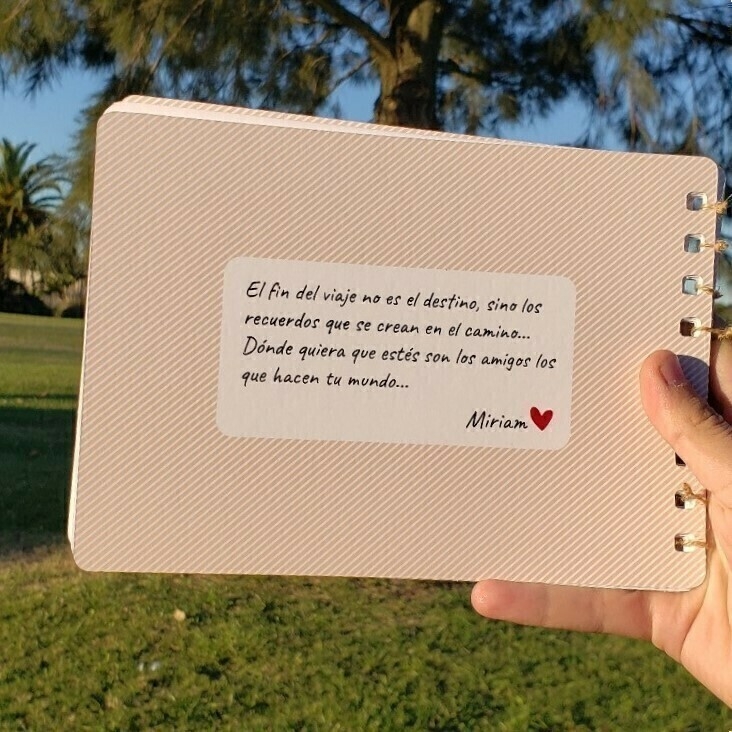 El fin del viaje no es el destino, sino los
recuerdos que se crean en el camino...
Dónde quiera que estés son los amigos los
que hacen tu mundo...
Miriam